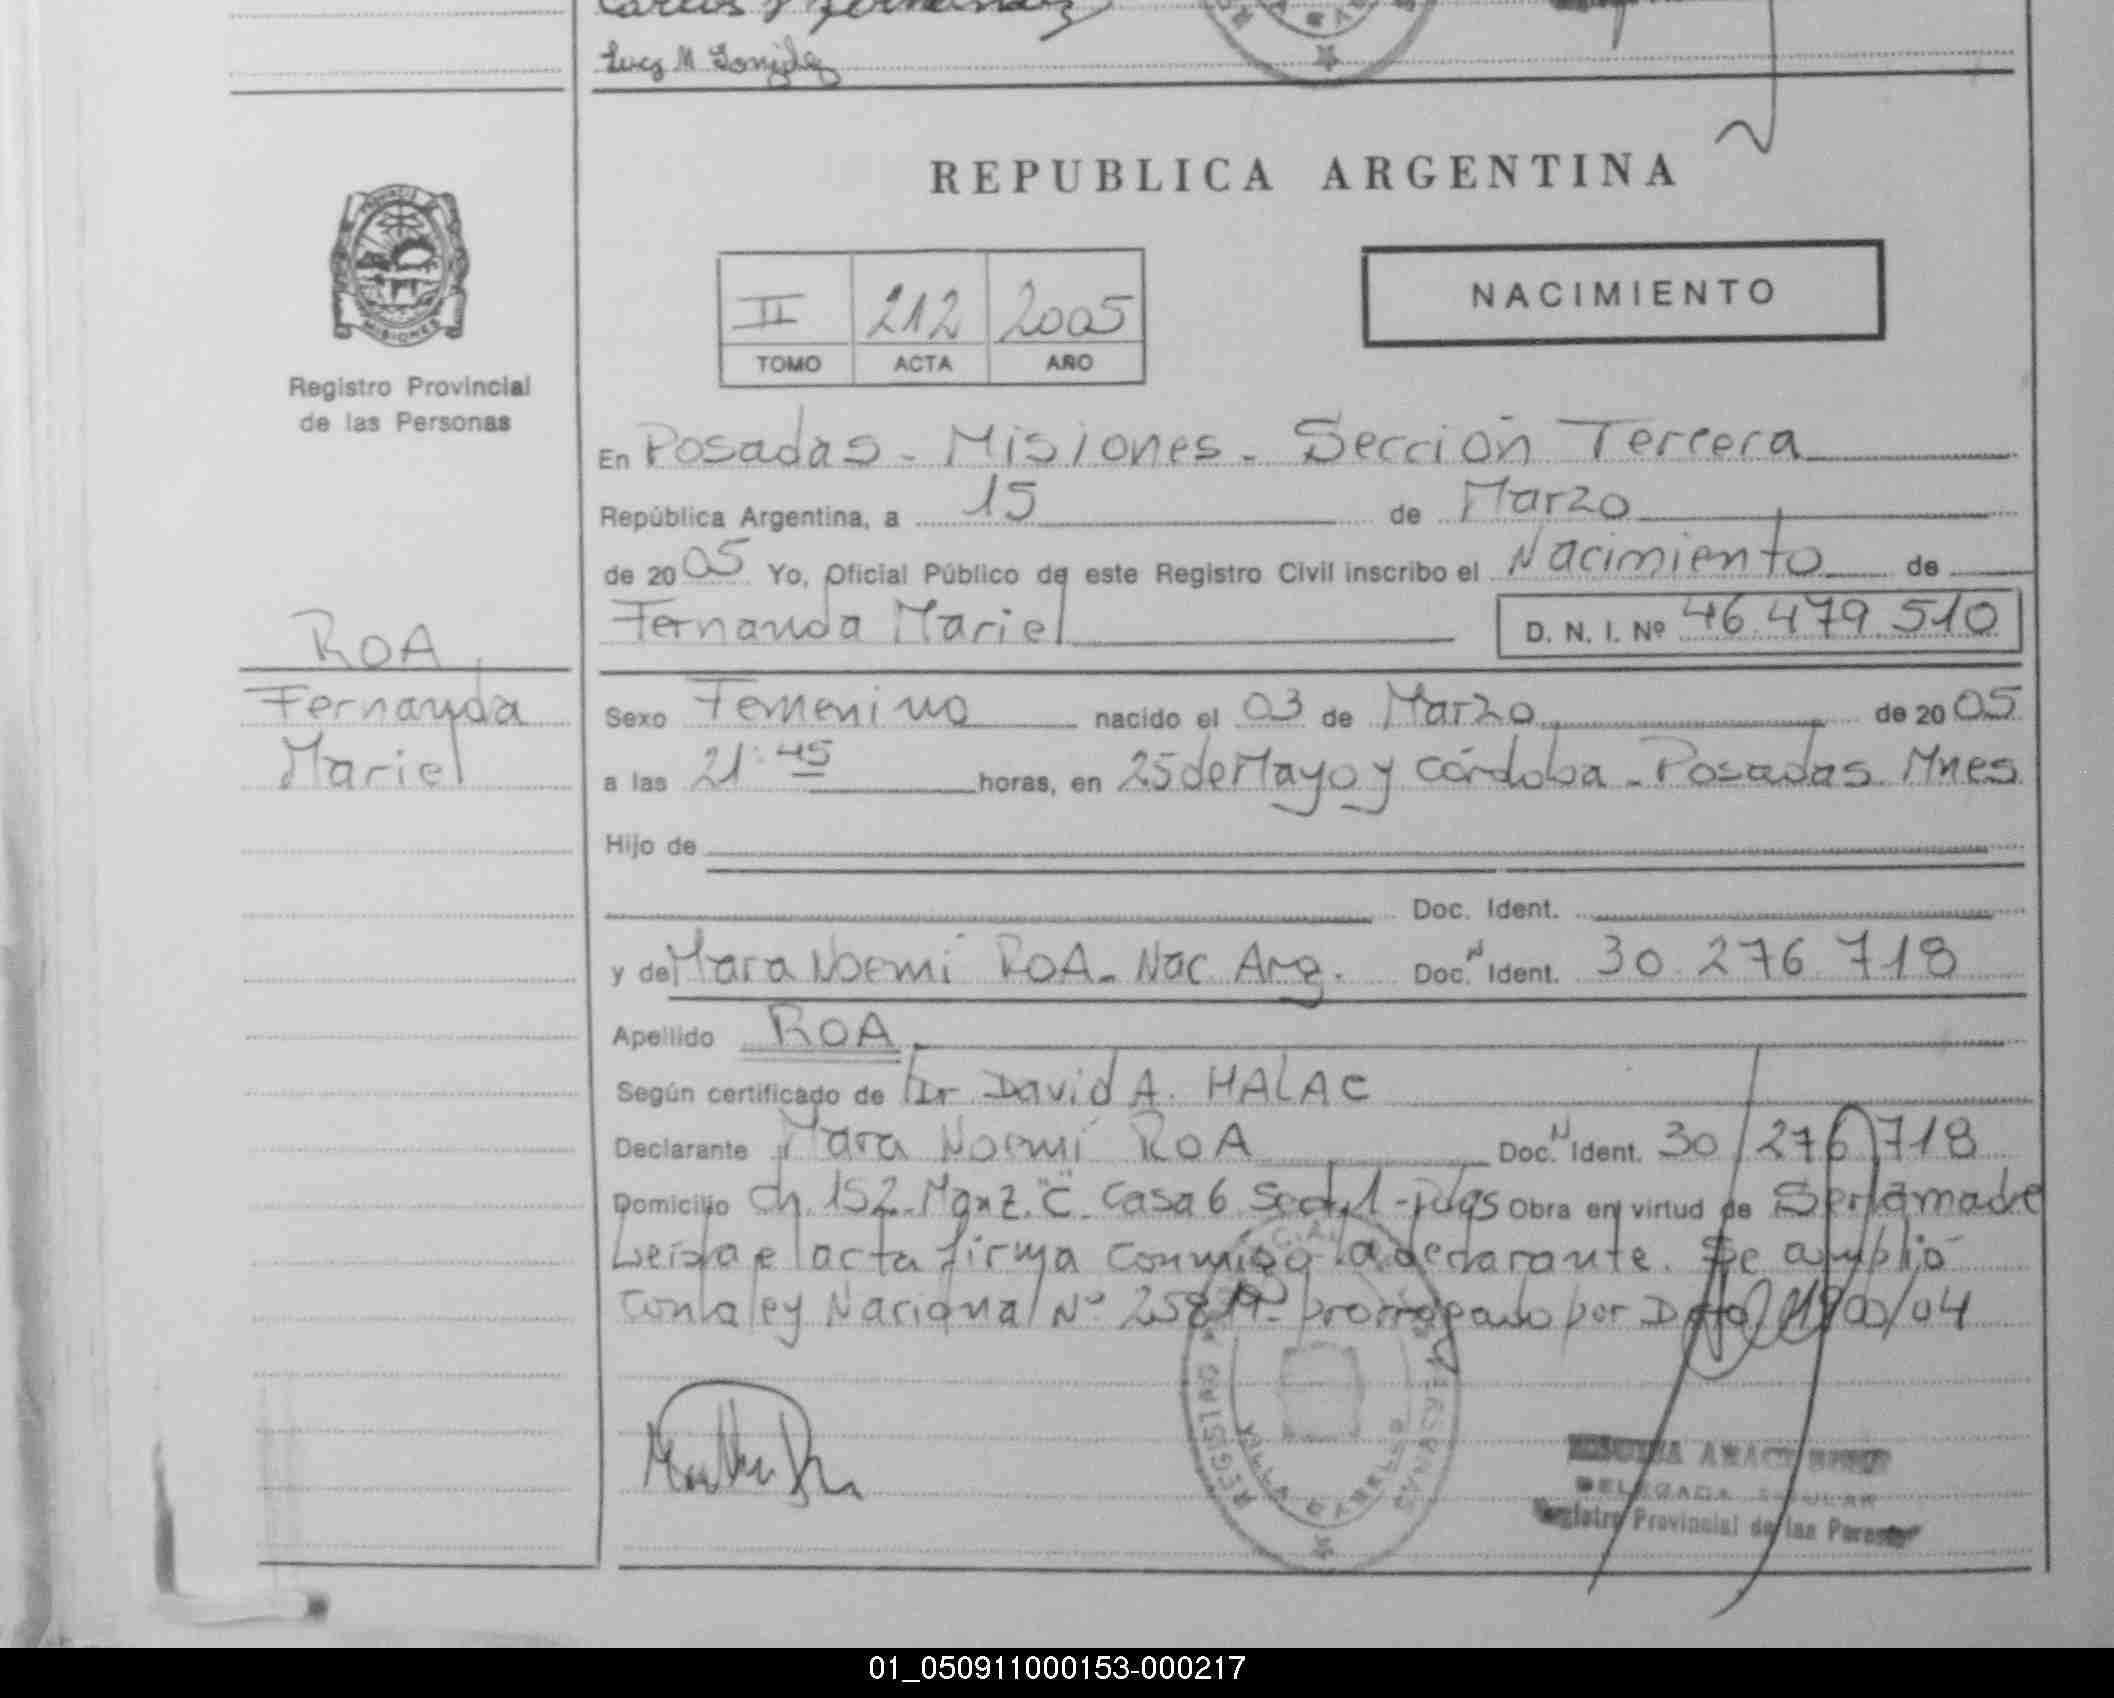 Carlos Fernandez
Lucy M Gonzalez
PROVINCIA DE
MISIONES
Registro Provincial
de las Personas
REPUBLICA ARGENTINA
II 212 2005
TOMO ACTA AÑO
NACIMIENTO
En Posadas - Misiones - Sección Tercera
República Argentina, a 15 de Marzo
de 2005 Yo, Oficial Público de este Registro Civil inscribo el Nacimiento de
Fernanda Mariel D. N. I. Nº 46.479.510
ROA
Fernanda
Mariel
Sexo Femenino nacido el 03 de Marzo de 2005
a las 21:45 horas, en 25 de Mayo y Córdoba - Posadas. Mnes
Hijo de
Doc. Ident.
y de Mara Noemí ROA - Nac Arg. Doc. N Ident. 30.276.718
Apellido ROA
Según certificado de Dr David A. HALAC
Declarante Mara Noemí ROA Doc. N Ident. 30/276.718
Domicilio Ch. 152 - Manz. "C" - Casa 6 Sect. 1 - Pdas Obra en virtud de Ser la madre
Leída el acta firma conmigo la declarante. Se amplió
con la ley Nacional Nº 25819 - prorrogado por Dto 1900/04
REGISTRO PERSONAS
VILLA
DELEGADA TITULAR
Registro Provincial de las Personas
01_050911000153-000217